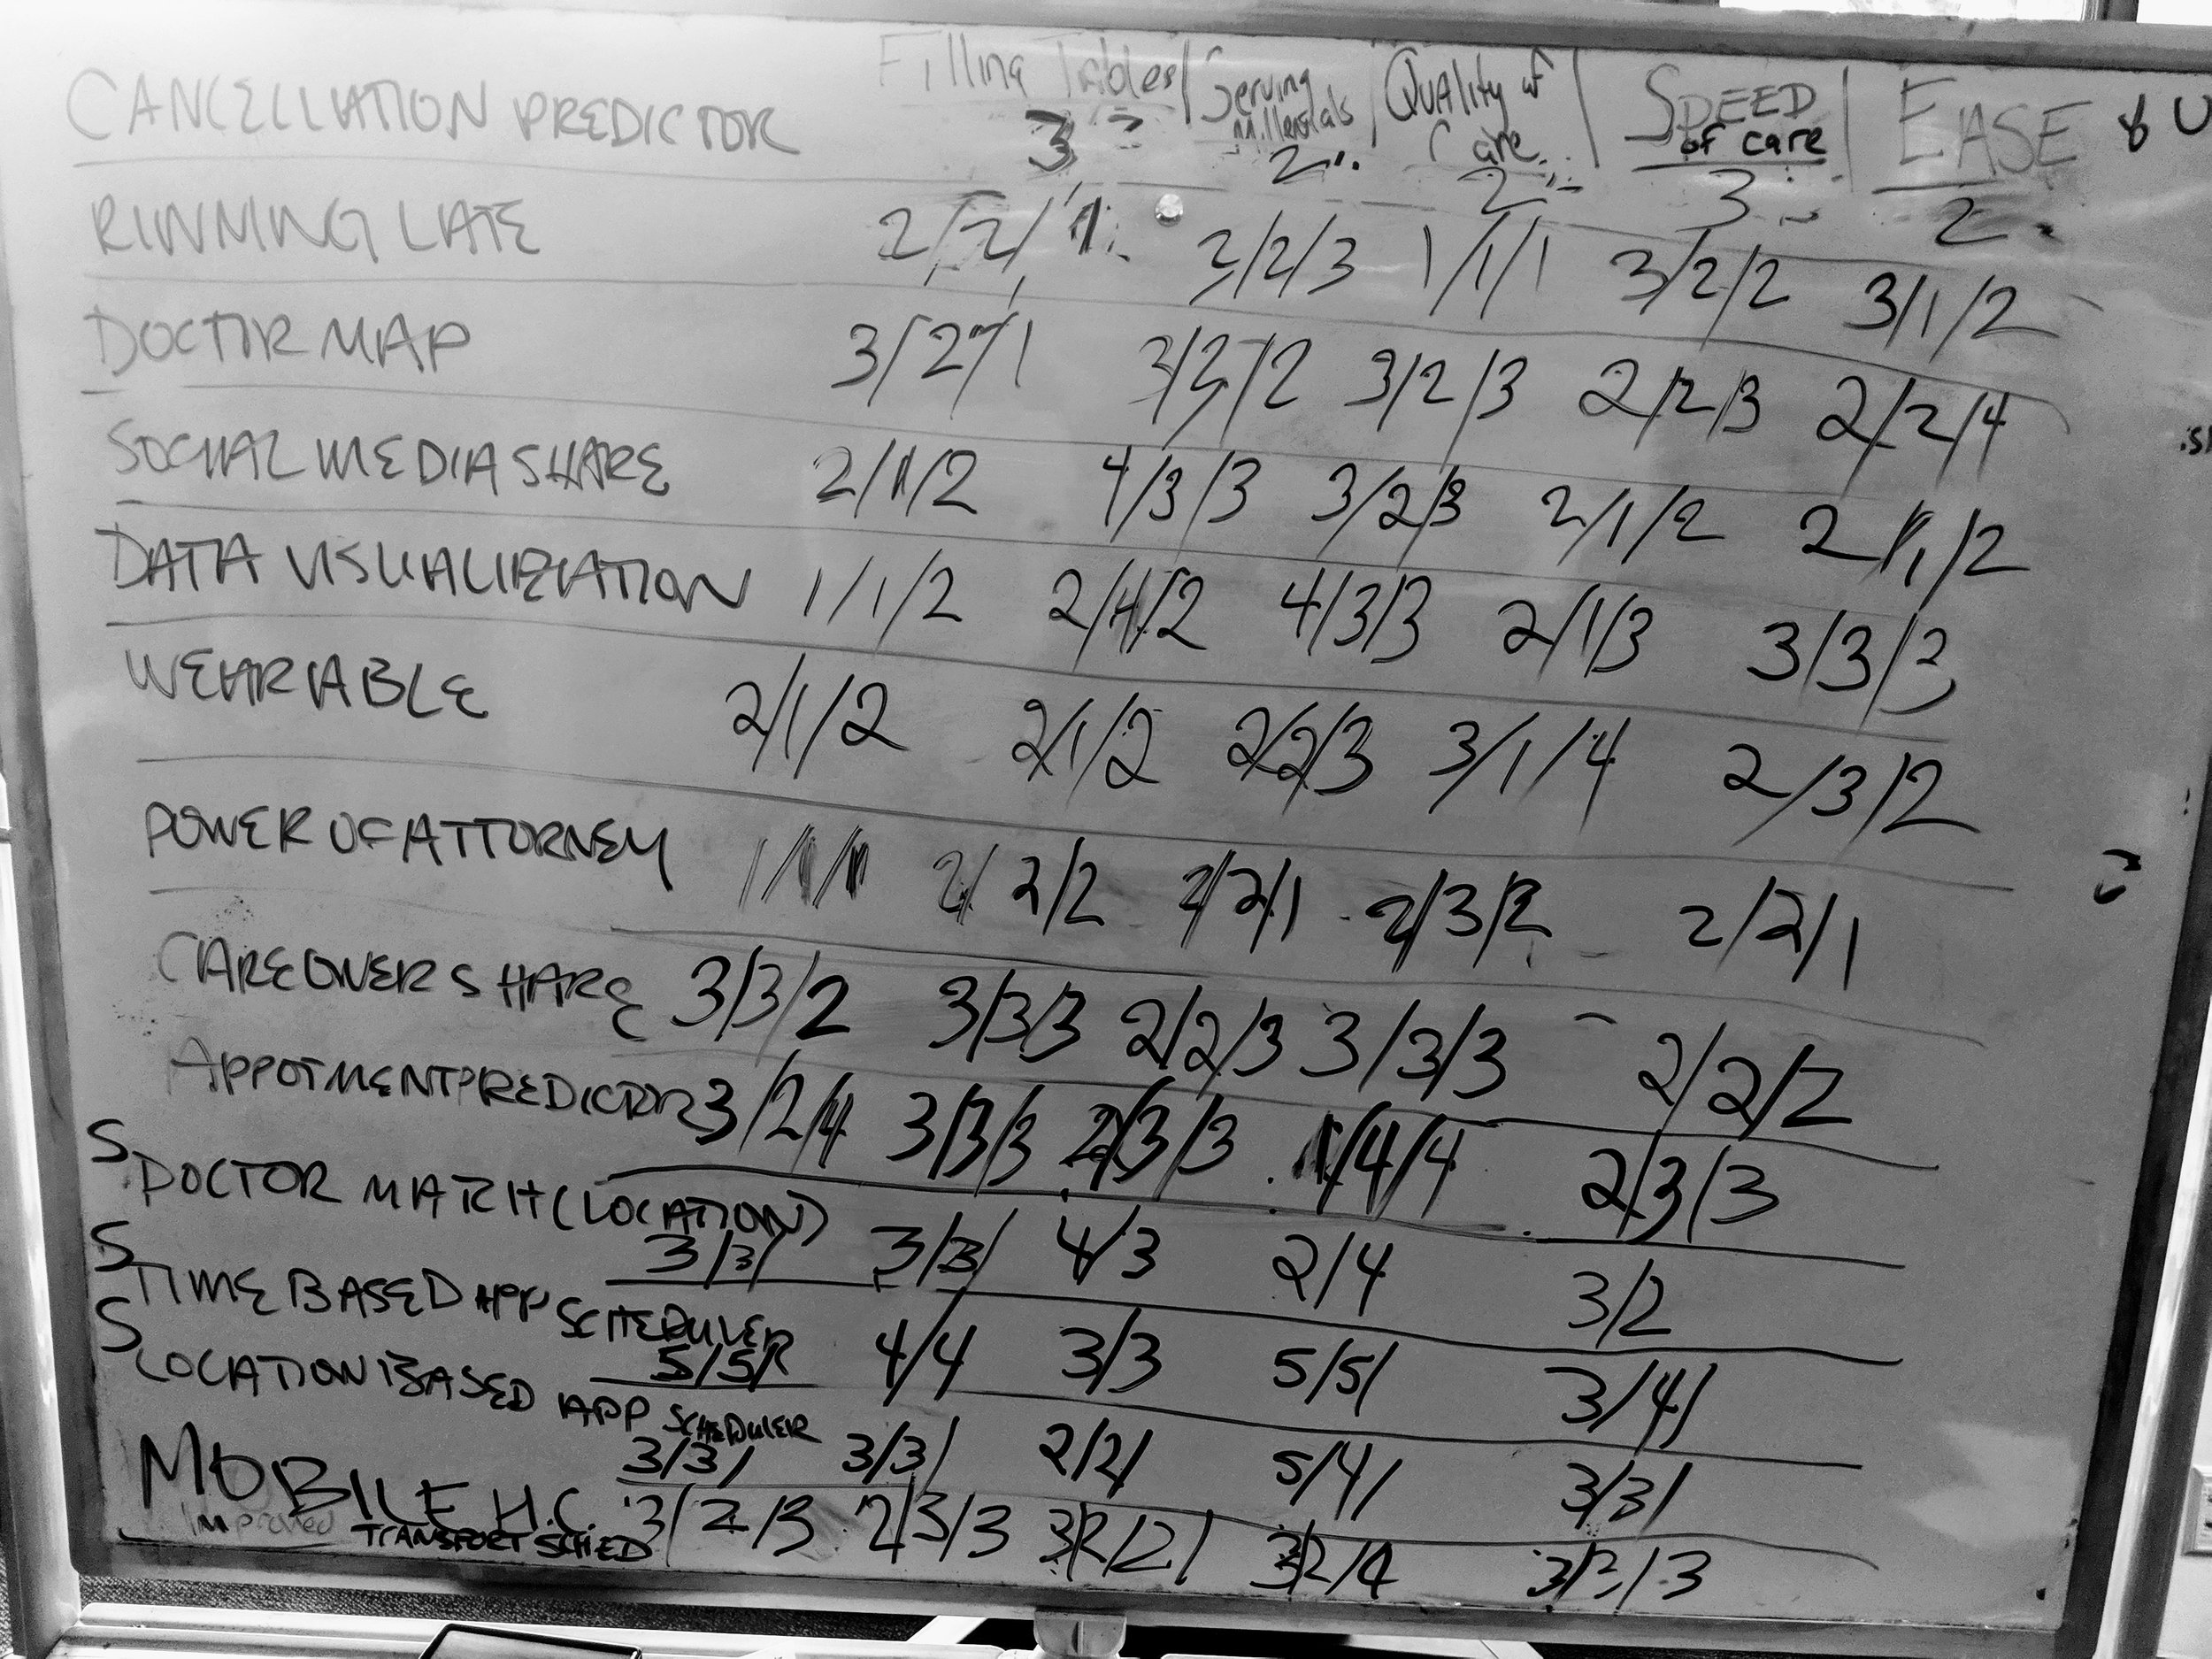 Filling Tables | Serving Millenials | Quality of Care | SPEED of care | EASE of U
CANCELLATION PREDICTOR 3 2 2 3 2
RUNNING LATE 2/2/1 2/2/3 1/1/1 3/2/2 3/1/2
DOCTOR MAP 3/2/1 3/2/2 3/2/3 2/2/3 2/2/4
SOCIAL MEDIA SHARE 2/1/2 4/3/3 3/2/3 2/1/2 2/1/2
DATA VISUALIZATION 1/1/2 2/4/2 4/3/3 2/1/3 3/3/3
WEARIABLE 2/1/2 2/1/2 2/2/3 3/1/4 2/3/2
POWER OF ATTORNEY 1/1/1 2/2/2 2/2/1 2/3/2 2/2/1
CAREGIVER SHARE 3/3/2 3/3/3 2/2/3 3/3/3 2/2/2
APPOTMENT PREDICTOR 3/2/4 3/3/3 2/3/3 1/4/4 2/3/3
S DOCTOR MATCH (LOCATION)
3/3/ 3/3/ 4/3 2/4 3/2
S TIME BASED APP SCHEDULER
5/5/ 4/4 3/3 5/5/ 3/4/
S LOCATION BASED APP SCHEDULER
3/3/ 3/3/ 2/2/ 5/4/ 3/3/
MOBILE H.C. 3/2/3 2/3/3 3/2/2/ 3/2/4 3/3/3
Improved TRANSPORT SCHED